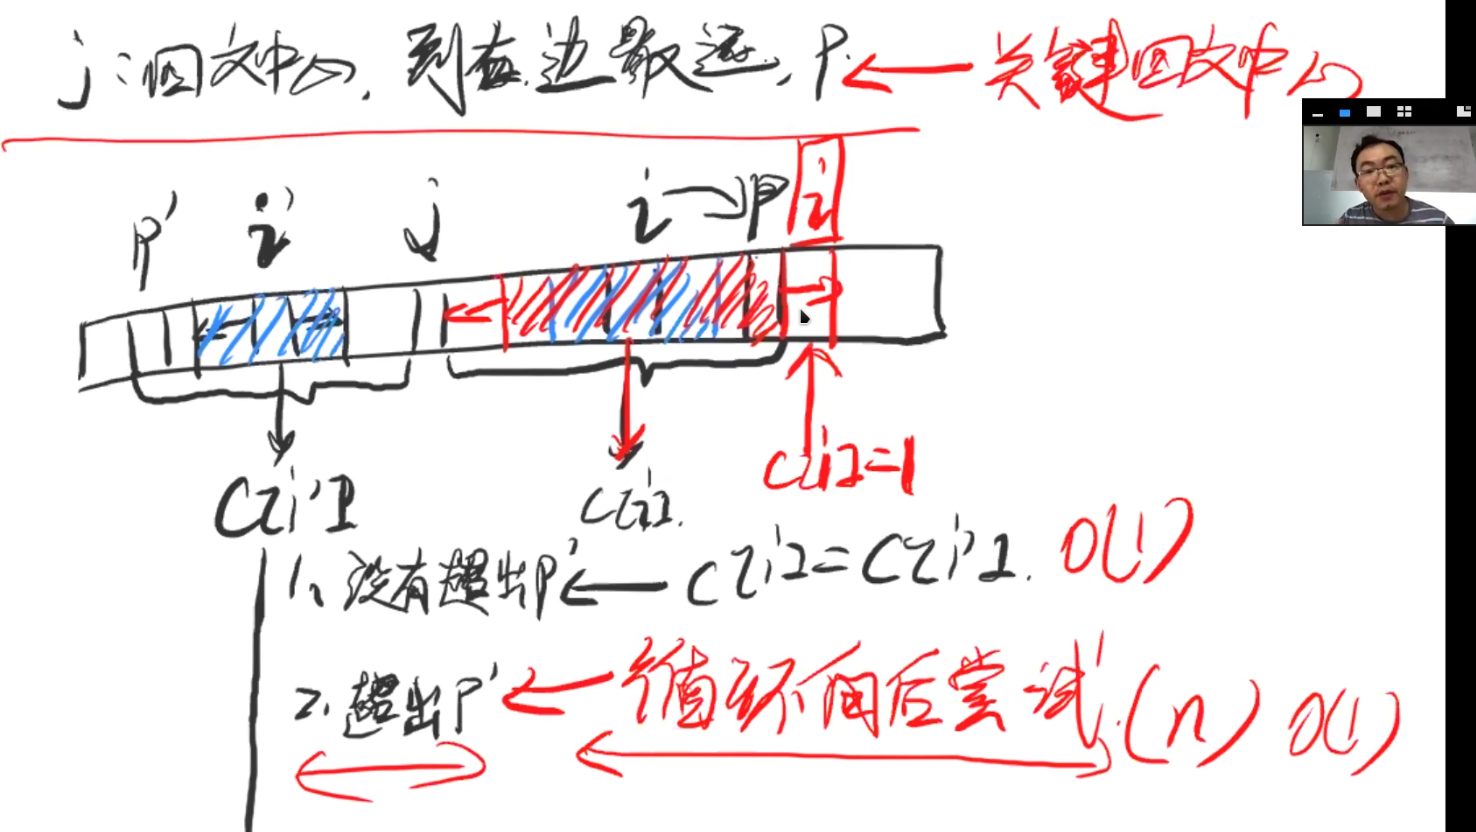 j：回文中心，到右边最远，P. ← 关键回文中心
P' i' j i → P i
C[i'] C[i] C[i]=1
1、没有超出P' ← C[i]=C[i'] O(1)
2、超出P' ← 循环向后尝试.(n) O(1)